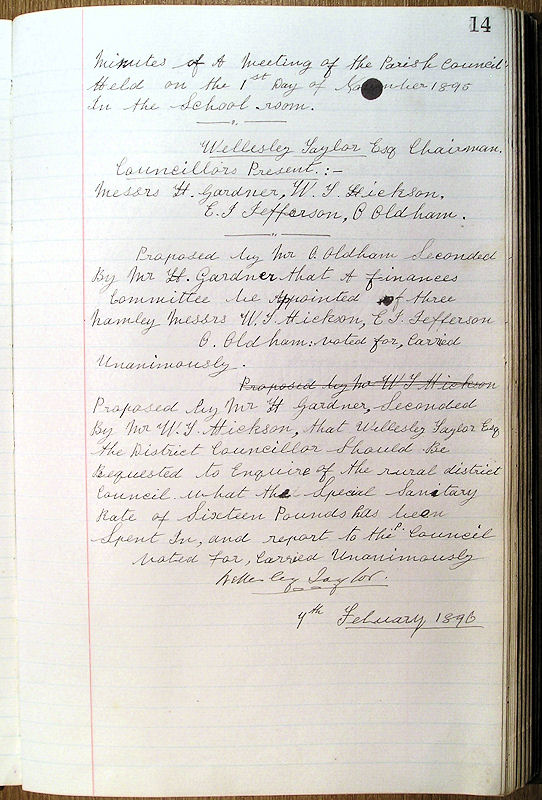 14
Minutes of A Meeting of the Parish Council
Held on the 1st Day of November 1895
In the School room.
Wellesley Taylor Esq Chairman.
Councillors Present.:-
Messrs H. Gardner, W. T. Hickson,
E. T Jefferson, O Oldham.
Proposed by Mr O. Oldham Seconded
By Mr H. Gardner that A finances
Committee be Appointed of three
Namley Messrs W. T. Hickson, E. T. Jefferson
O. Oldham: voted for, Carried
Unanimously.
Proposed by Mr W T Hickson
Proposed by Mr H Gardner, Seconded
By Mr W. T. Hickson, that Wellesley Taylor Esq
the District Councillor Should Be
Requested to Enquire of the rural district
Council what the Special Sanitary
Rate of Sixteen Pounds has been
Spent In, and report to the P. Council
voted for, Carried Unanimously
Wellesley Taylor.
7th February 1896